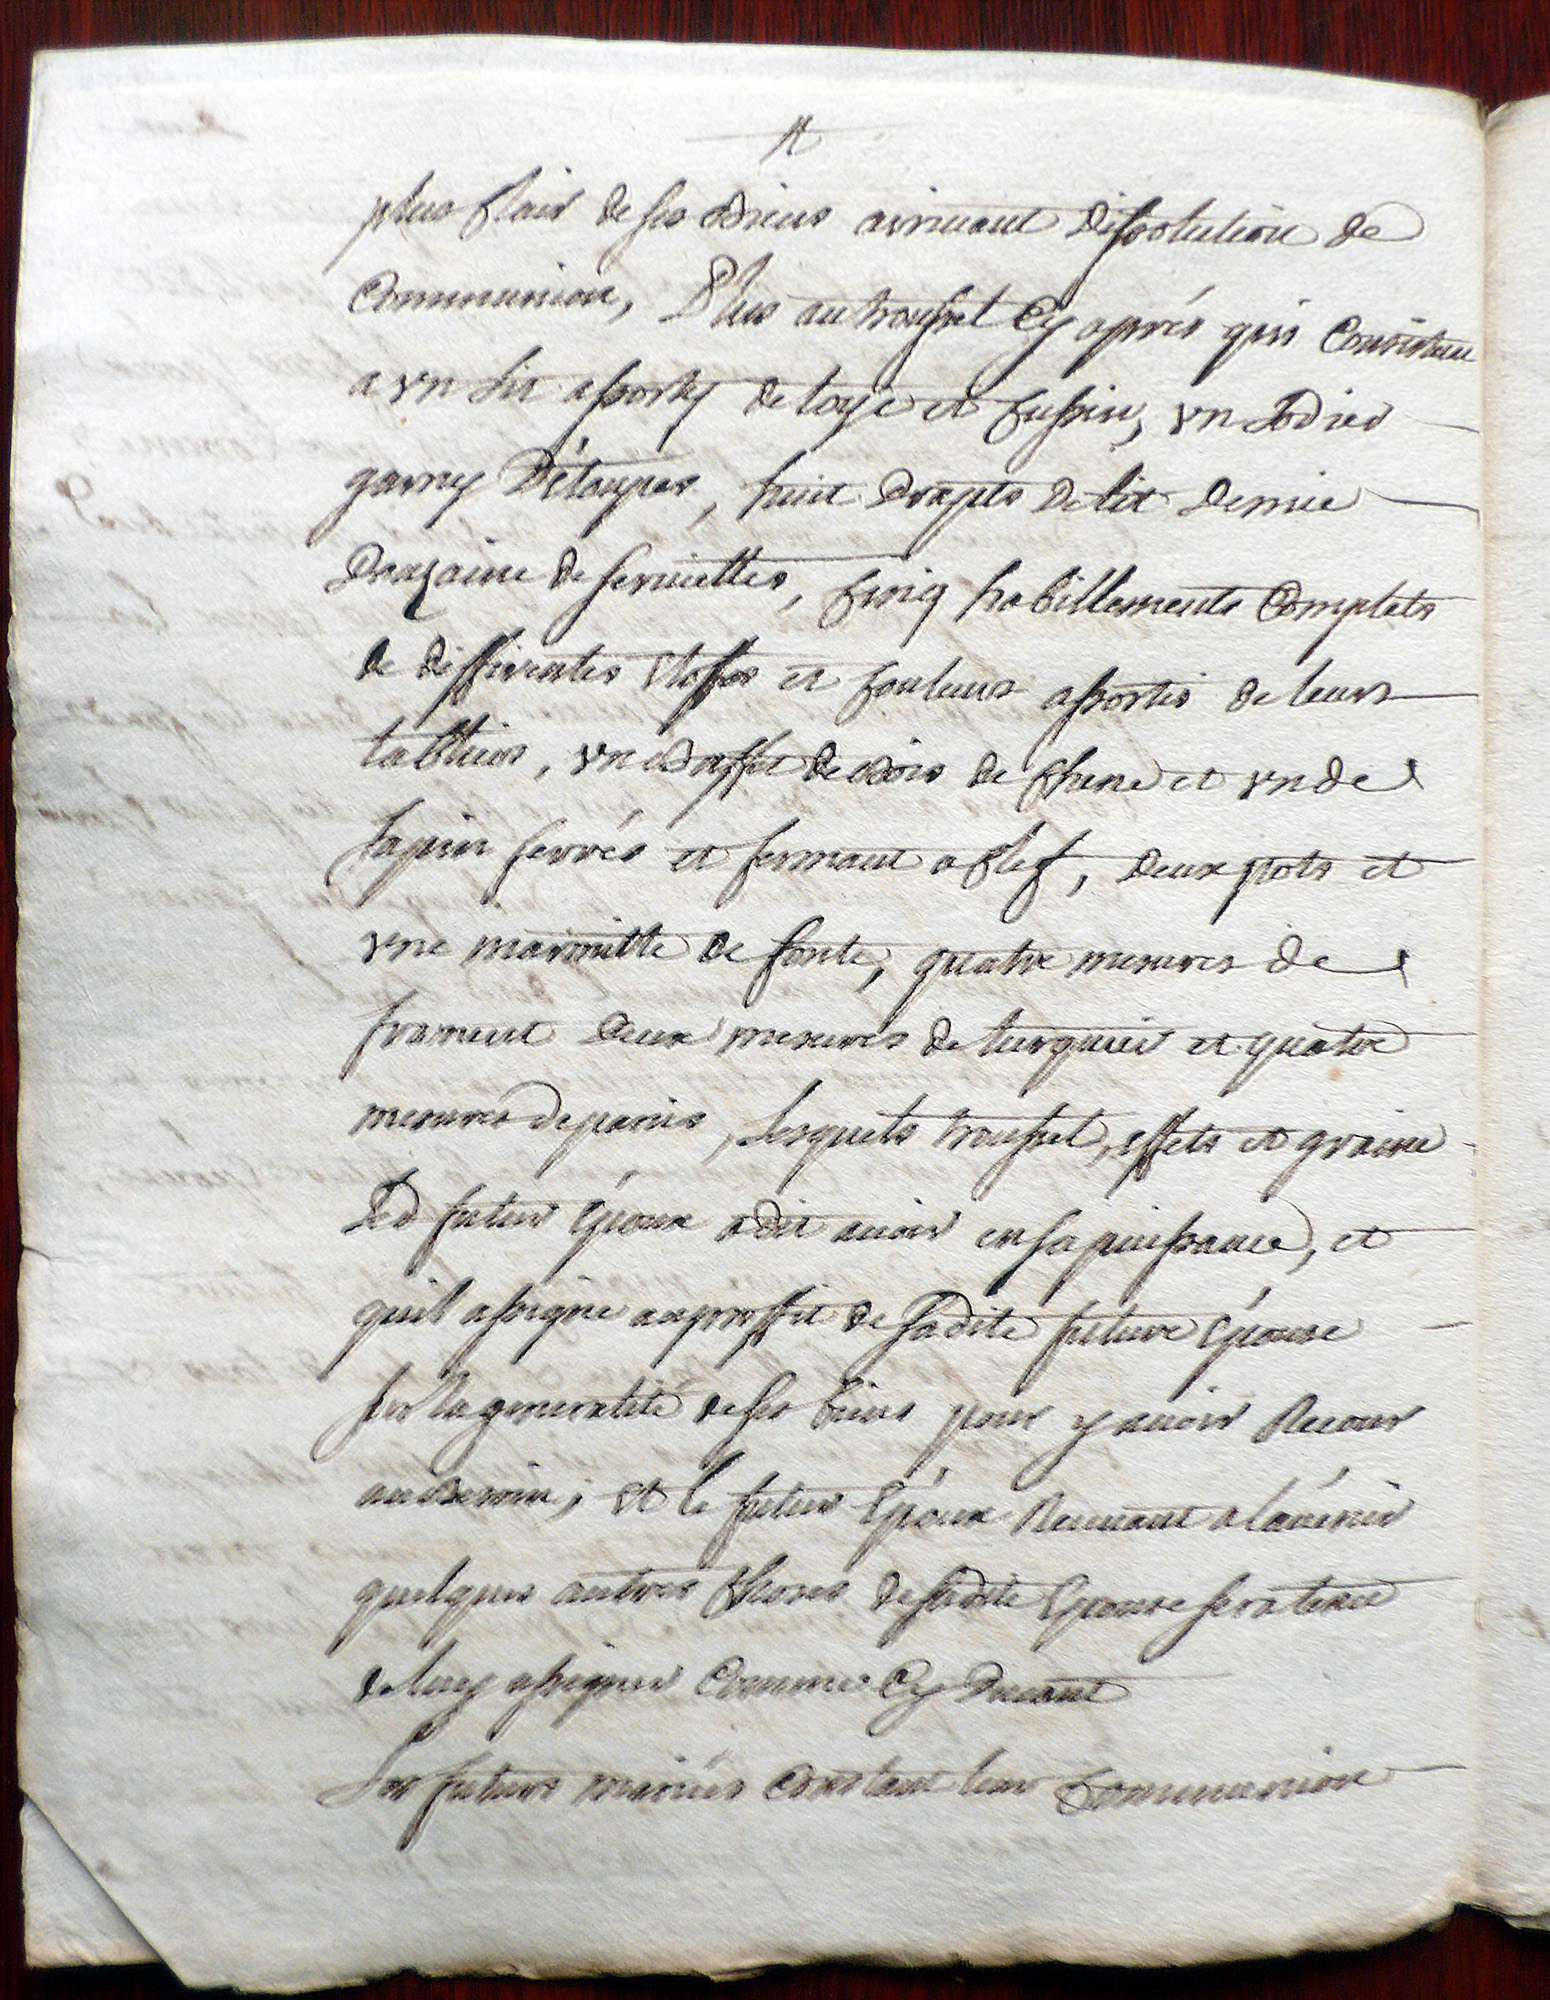 plus Clair de ses Biens arrivant Dissolution de
Communion, Plus au troussel Cy aprés qui Consistera
a vn Lit assorty de toye et Cussin, vn Lodier
garny D'étoupes, huit Draps de lit Demie
Douzaine de serviettes, Cinq habillements Complets
de differentes Etoffes et Couleurs assortis de leurs
tabliers, vn Buffet de Bois de Chene et vn de
sapin ferrés et fermant a Clef, Deux pots et
vne marmitte de fonte, quatre mesures de
froment Deux mesures de turquie et quatre
mesures de panis, Lesquels troussel, effets et graine
Led futur Epoux a dit avoir en sa puissance, et
quil assigne au proffit de sadite future Epouse
sur la generalité de ses biens pour y avoir Recour
au Besoin; Et le futur Epoux Recevant a lavenir
quelques autres Choses de sadite Epouse sera tenu
de luy assigner Comme Cy Devant
Les futurs mariés Constant leur Communion